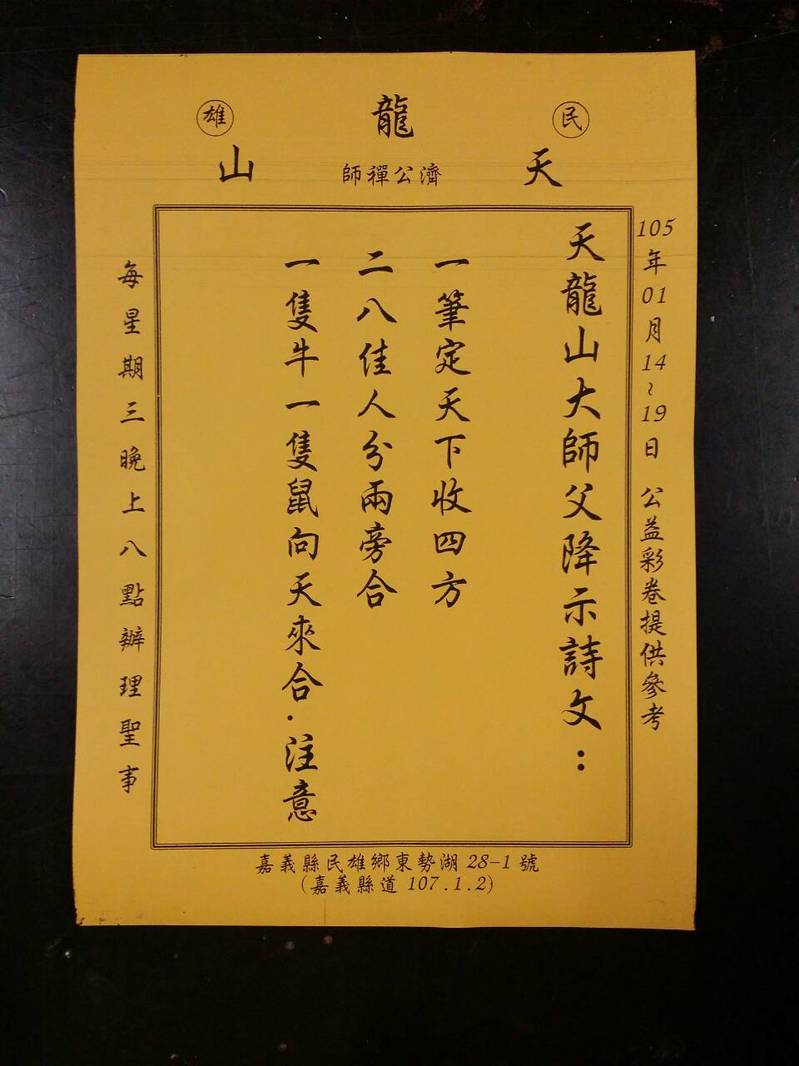 民雄
天龍山
濟公禪師
105年01月14~19日 公益彩卷提供參考
天龍山大師父降示詩文：
一筆定天下收四方
二八佳人分兩旁合
一隻牛一隻鼠向天來合．注意
每星期三晚上八點辦理聖事
嘉義縣民雄鄉東勢湖28-1號
(嘉義縣道107.1.2)